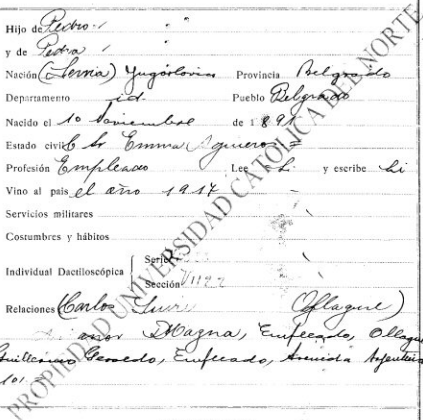 Hijo de Pedro
y de Pedra
Nación (Servia) Yugoslovia Provincia Belgrado
Departamento id. Pueblo Belgrado
Nacido el 10 Noviembre de 1891
Estado civil C Sr Emma Aguero
Profesión Empleado Lee Si y escribe Si
Vino al país el año 1917
Servicios militares
Costumbres y hábitos
Individual Dactiloscópica Serie
Sección
Relaciones (Carlos (Ollague)
Mazna, Empleado, Ollague
Guillermo Empleado, Avenida Argentina
101
PROPIEDAD UNIVERSIDAD CATOLICA DEL NORTE